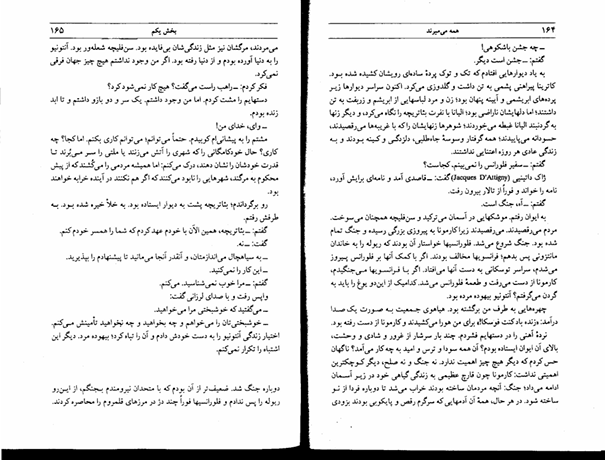 ۱۶۴ همه می‌میرند
ــ چه جشن باشکوهی!
گفتم: ــ جشن است دیگر.
به یاد دیوارهایی افتادم که تک و توک پرده ساده‌ای رویشان کشیده شده بود.
کاترینا پیراهنی پشمی به تن داشت و گلدوزی می‌کرد. اکنون سراسر دیوارها زیر
پرده‌های ابریشمی و آیینه پنهان بود؛ زن و مرد لباسهایی از ابریشم و زربفت به تن
داشتند؛ اما دلهایشان ناراضی بود؛ الیانا با نفرت بئاتریچه را نگاه می‌کرد، و دیگر زنها
به گردنبند الیانا غبطه می‌خوردند؛ شوهرها زنهایشان را که با غریبه‌ها می‌رقصیدند،
حسودانه می‌پاییدند؛ همه گرفتار وسوسه جاه‌طلبی، دلزدگی و کینه بودند و به
زندگی عادی هر روزه اعتنایی نداشتند.
گفتم: ــ سفیر فلورانس را نمی‌بینم. کجاست؟
ژاک داتینیی (Jacques D'Attigny) گفت: ــ قاصدی آمد و نامه‌ای برایش آورد،
نامه را خواند و فوراً از تالار بیرون رفت.
گفتم: ــ آه، جنگ است.
به ایوان رفتم. موشکهایی در آسمان می‌ترکید و سن‌فلیچه همچنان می‌سوخت.
مردم می‌رقصیدند. می‌رقصیدند زیرا کارمونا به پیروزی بزرگی رسیده و جنگ تمام
شده بود. جنگ شروع می‌شد. فلورانسیها خواستار آن بودند که ریوله را به خاندان
مانتزونی پس بدهم؛ فرانسویها مخالف بودند. اگر با کمک آنها بر فلورانس پیروز
می‌شدم، سراسر توسکانی به دست آنها می‌افتاد. اگر با فرانسویها می‌جنگیدم،
کارمونا از دست می‌رفت و طعمهٔ فلورانس می‌شد. کدامیک از این‌دو یوغ را باید به
گردن می‌گرفتم؟ آنتونیو بیهوده مرده بود.
چهره‌هایی به طرف من برگشته بود. هیاهوی جمعیت به صورت یک صدا
درآمد: «زنده باد کنت فوسکا!» برای من هورا می‌کشیدند و کارمونا از دست رفته بود.
نردهٔ آهنی را در دستهایم فشردم. چند بار سرشار از غرور و شادی و وحشت،
بالای آن ایوان ایستاده بودم؟ آن همه سودا و ترس و امید به چه کار می‌آمد؟ ناگهان
حس کردم که دیگر هیچ چیز اهمیت ندارد، نه جنگ و نه صلح، دیگر کوچکترین
اهمیتی نداشت: کارمونا چون قارچ عظیمی به زندگی گیاهی خود در زیر آسمان
ادامه می‌داد؛ جنگ: آنچه مردمان ساخته بودند خراب می‌شد تا دوباره فردا از نو
ساخته شود. در هر حال، همهٔ آن آدمهایی که سرگرم رقص و پایکوبی بودند بزودی
بخش یکم ۱۶۵
می‌مردند، مرگشان نیز مثل زندگی‌شان بی‌فایده بود. سن‌فلیچه شعله‌ور بود. آنتونیو
را به دنیا آورده بودم و از دنیا رفته بود. اگر من وجود نداشتم هیچ چیز جهان فرقی
نمی‌کرد.
فکر کردم: ــ راهب راست می‌گفت؟ هیچ کار نمی‌شود کرد؟
دستهایم را مشت کردم. اما من وجود داشتم. یک سر و دو بازو داشتم و تا ابد
زنده بودم.
ــ وای، خدای من!
مشتم را به پیشانی‌ام کوبیدم. حتماً می‌توانم؛ می‌توانم کاری بکنم. اما کجا؟ چه
کاری؟ حال خودکامگانی را که شهری را آتش می‌زنند یا ملتی را سر می‌بُرند تا
قدرت خودشان را نشان دهند، درک می‌کنم: اما همیشه مردمی را می‌کُشند که از پیش
محکوم به مرگند، شهرهایی را نابود می‌کنند که اگر هم نکنند در آینده خرابه خواهند
بود.
رو برگرداندم؛ بئاتریچه پشت به دیوار ایستاده بود. به خلأ خیره شده بود. به
طرفش رفتم.
گفتم: ــ بئاتریچه، همین الآن با خودم عهد کردم که شما را همسر خودم کنم.
گفت: ــ نه.
ــ به سیاهچال می‌اندازمتان، و آنقدر آنجا می‌مانید تا پیشنهادم را بپذیرید.
ــ این کار را نمی‌کنید.
گفتم: ــ مرا خوب نمی‌شناسید. می‌کنم.
واپس رفت و با صدای لرزانی گفت:
ــ می‌گفتید که خوشبختی مرا می‌خواهید.
ــ خوشبختی‌تان را می‌خواهم و چه بخواهید و چه نخواهید تأمینش می‌کنم.
اختیار زندگی آنتونیو را به دست خودش دادم و آن را تباه کرد؛ بیهوده مرد. دیگر این
اشتباه را تکرار نمی‌کنم.
دوباره جنگ شد. ضعیف‌تر از آن بودم که با متحدان نیرومندم بجنگم، از این‌رو
ریوله را پس ندادم و فلورانسیها فوراً چند دژ در مرزهای قلمروم را محاصره کردند.